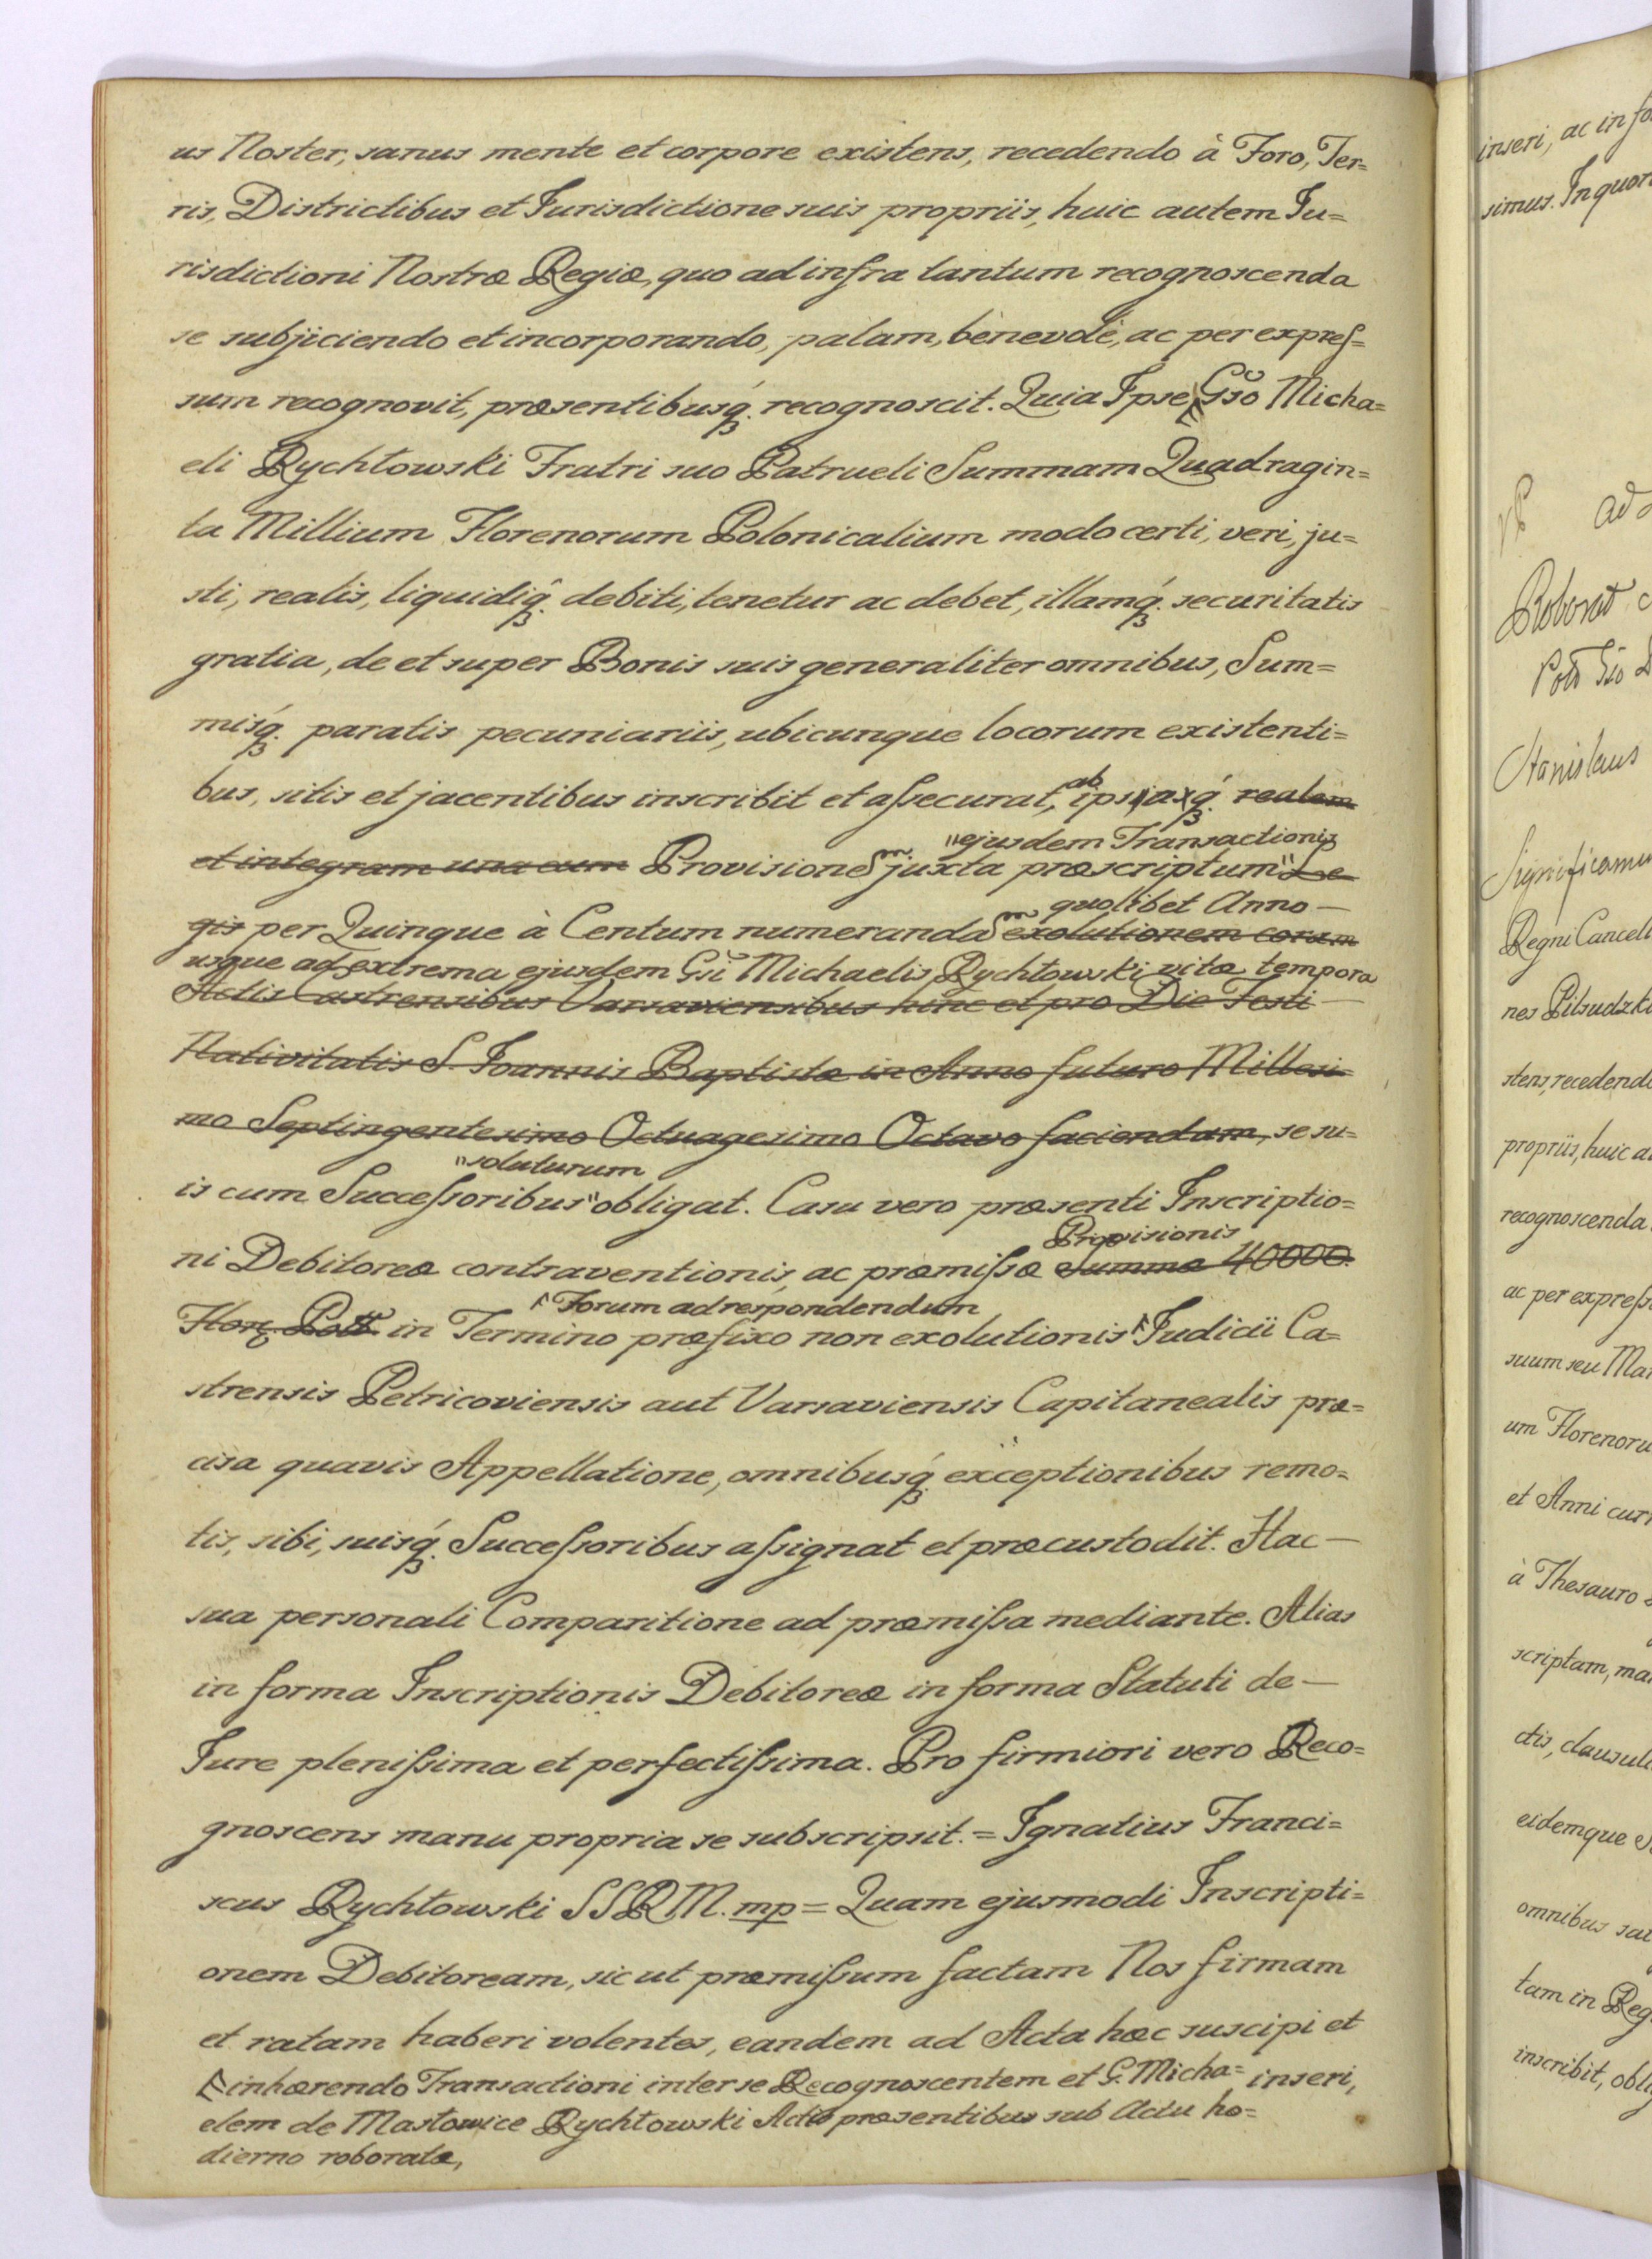 us Noster, sanus mente et corpore existens, recedendo à Foro, Ter=
ris, Districtibus et Jurisdictione suis propriis, huic autem Ju=
risdictioni Nostræ Regiæ, quo ad infra tantum recognoscenda
se subjiciendo et incorporando, palam, benevolè, ac per expres=
sum recognovit, præsentibusq́. recognoscit. Quia Ipse Gso Micha=
eli Rychłowski Fratri suo Patrueli Summam Quadragin=
ta Millium Florenorum Polonicalium modo certi, veri, ju=
sti, realis, liquidiq́. debiti, tenetur ac debet, illamq́. securitatis
gratia, de et super Bonis suis generaliter omnibus, Sum=
misq́. paratis pecuniariis, ubicunque locorum existenti=
bus, sitis et jacentibus inscribit et assecurat, ab ipsaq́. realem
"ejusdem Transactionis
et integram una cum Provisione m juxta præscriptum" Le
quolibet Anno—
gis per Quinque à Centum numeranda m exolutionem coram
usque ad extrema ejusdem Gsi Michaelis Rychłowski vitæ tempora
Actis Castrensibus Varsaviensibus hinc et pro Die Festi—
Nativitatis S. Joannis Baptistæ in Anno futuro Millesi=
mo Septingentesimo Octuagesimo Octavo faciendam, se su=
"soluturum
is cum Successoribus" obligat. Casu vero præsenti Inscriptio=
Provisionis
ni Debitoreæ contraventionis, ac præmissæ Summæ 40000.
Forum ad respondendum
Flor. Poll. in Termino præfixo non exolutionis Judicii Ca=
strensis Petricoviensis aut Varsaviensis Capitanealis præ=
cisa quavis Appellatione, omnibusq́. exceptionibus remo=
tis, sibi, suisq́. Successoribus assignat et præcustodit. Hac—
sua personali Comparitione ad præmissa mediante. Alias
in forma Inscriptionis Debitoreæ in forma Statuti de—
Jure plenissima et perfectissima. Pro firmiori vero Reco=
gnoscens manu propria se subscripsit. = Ignatius Franci=
scus Rychłowski SSRM. mp = Quam ejusmodi Inscripti=
onem Debitoream, sic ut præmissum factam Nos firmam
et ratam haberi volentes, eandem ad Acta hæc suscipi et
inseri,
inhærendo Transactioni inter se Recognoscentem et G. Micha=
elem de Masłowice Rychłowski Actis præsentibus sub Actu ho=
dierno roboratæ,
inseri, ac in
simus. In
Ad
Roborat
Stanislaus
Regni
nes Piłsudzki
stens, recedendo
propriis, huic
recognoscenda
ac per
suum seu
um
et Anni
à Thesauro
scriptam,
ctis,
eidemque
omnibus
tam in
inscribit,